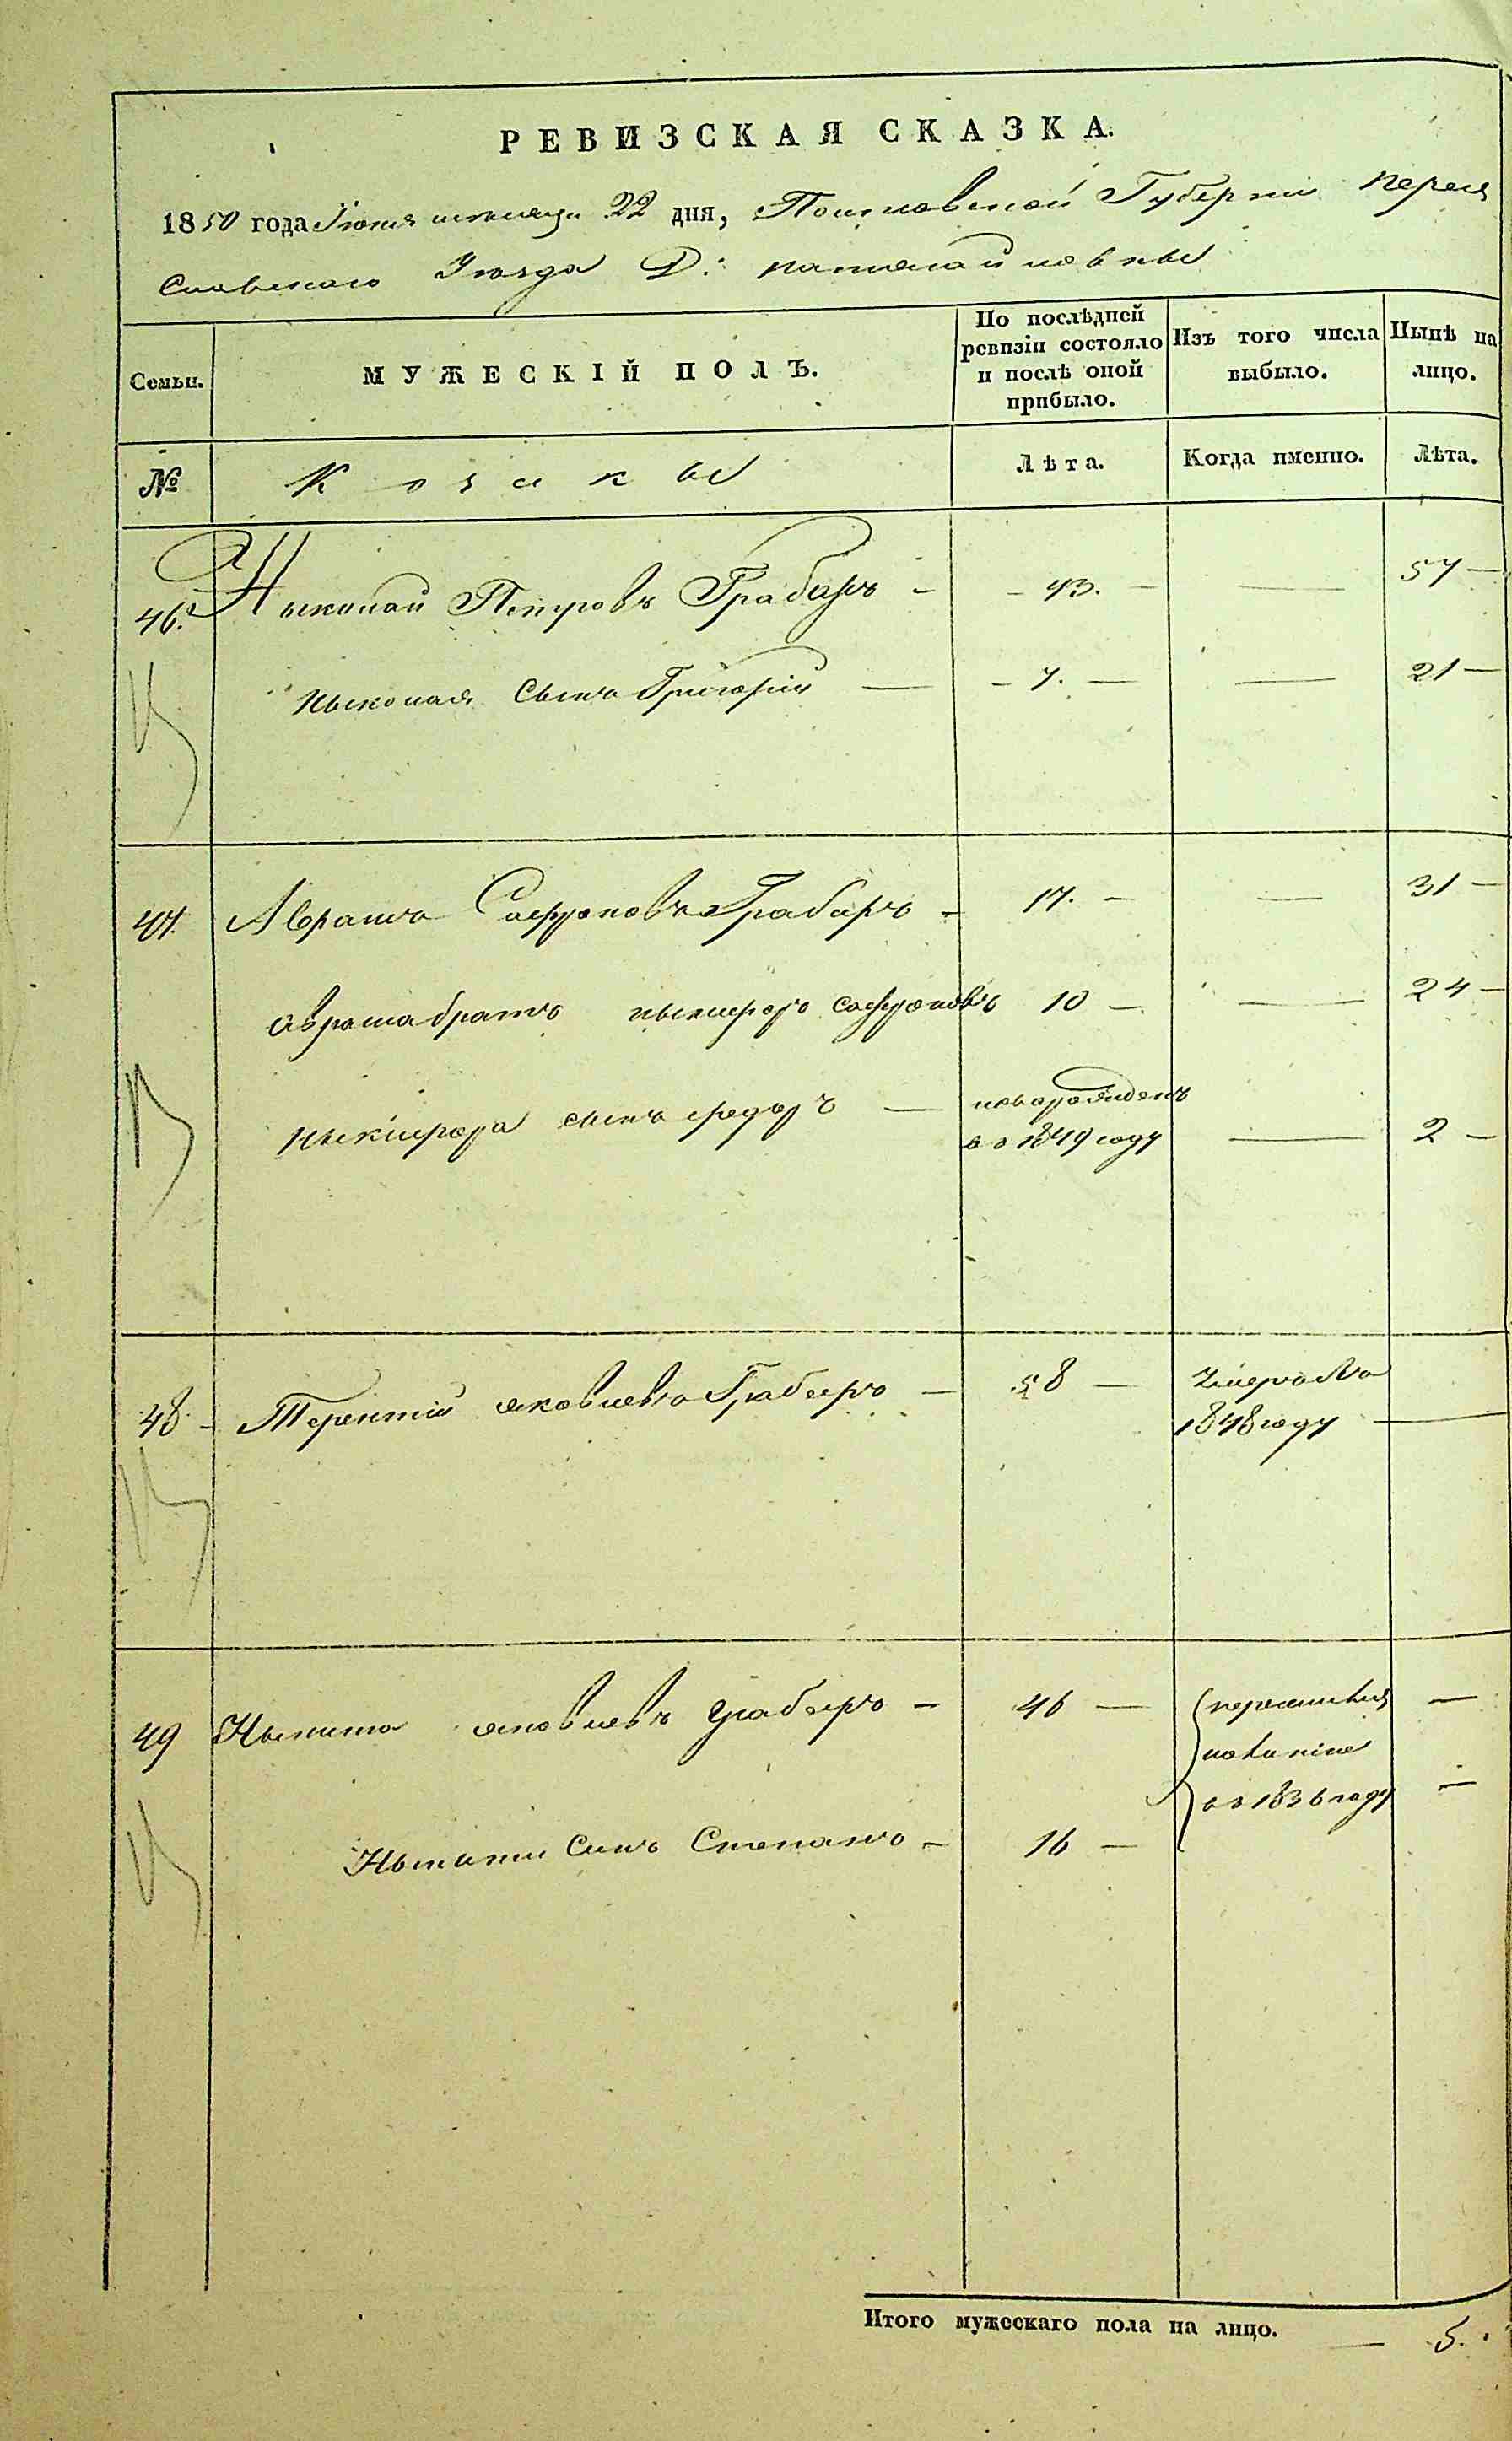 РЕВИЗСКАЯ СКАЗКА.
1850 года Іюня месяца 22 дня, Полтавской Губерніи Перея
Славскаго Уезда Д:
Семьи.
МУЖЕСКІЙ ПОЛЪ.
По послѣдней ревизіи состояло и послѣ оной прибыло.
Изъ того числа выбыло.
Нынѣ на лицо.
№
Козакы
Лѣта.
Когда именно.
Лѣта.
46. Ныколай Петровъ Грабаръ - - 43. - — 57 -
Ныколая Сынъ Григорій — - 7. — — 21 —
47. Аврамъ Сафроновъ Грабаръ - 17. - — 31 -
Аврама братъ Ныкифоръ Сафроновъ 10 - — 24 -
Ныкифора сынъ Федоръ — новорожденъ
во 1849 году — 2 -
48 - Терентій Яковлевъ Грабаръ — 58 — Умеръ Во
1848 году —
49 Ныкита Яковлевъ Грабаръ - 46 — —
во 1836 году —
Ныкиты Синъ Степанъ - 16 —
Итого мужескаго пола на лицо. — 5.